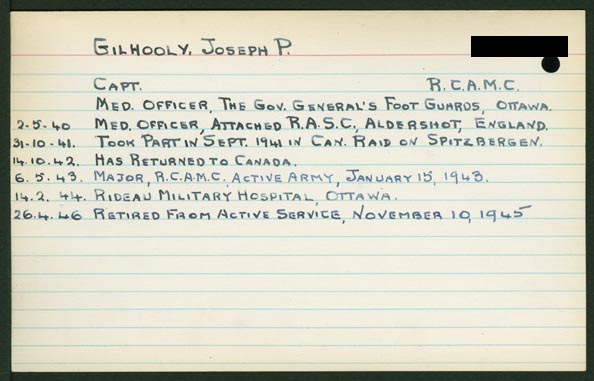 GILHOOLY, JOSEPH P.
CAPT. R.C.A.M.C.
MED. OFFICER, THE GOV. GENERAL'S FOOT GUARDS, OTTAWA.
2-5-40 MED. OFFICER, ATTACHED R.A.S.C., ALDERSHOT, ENGLAND.
31-10-41. TOOK PART IN SEPT. 1941 IN CAN. RAID ON SPITZBERGEN.
14.10.42. HAS RETURNED TO CANADA.
6.5.43. MAJOR, R.C.A.M.C. ACTIVE ARMY, JANUARY 15, 1943.
14.2.44. RIDEAU MILITARY HOSPITAL, OTTAWA.
26.4.46 RETIRED FROM ACTIVE SERVICE, NOVEMBER 10, 1945